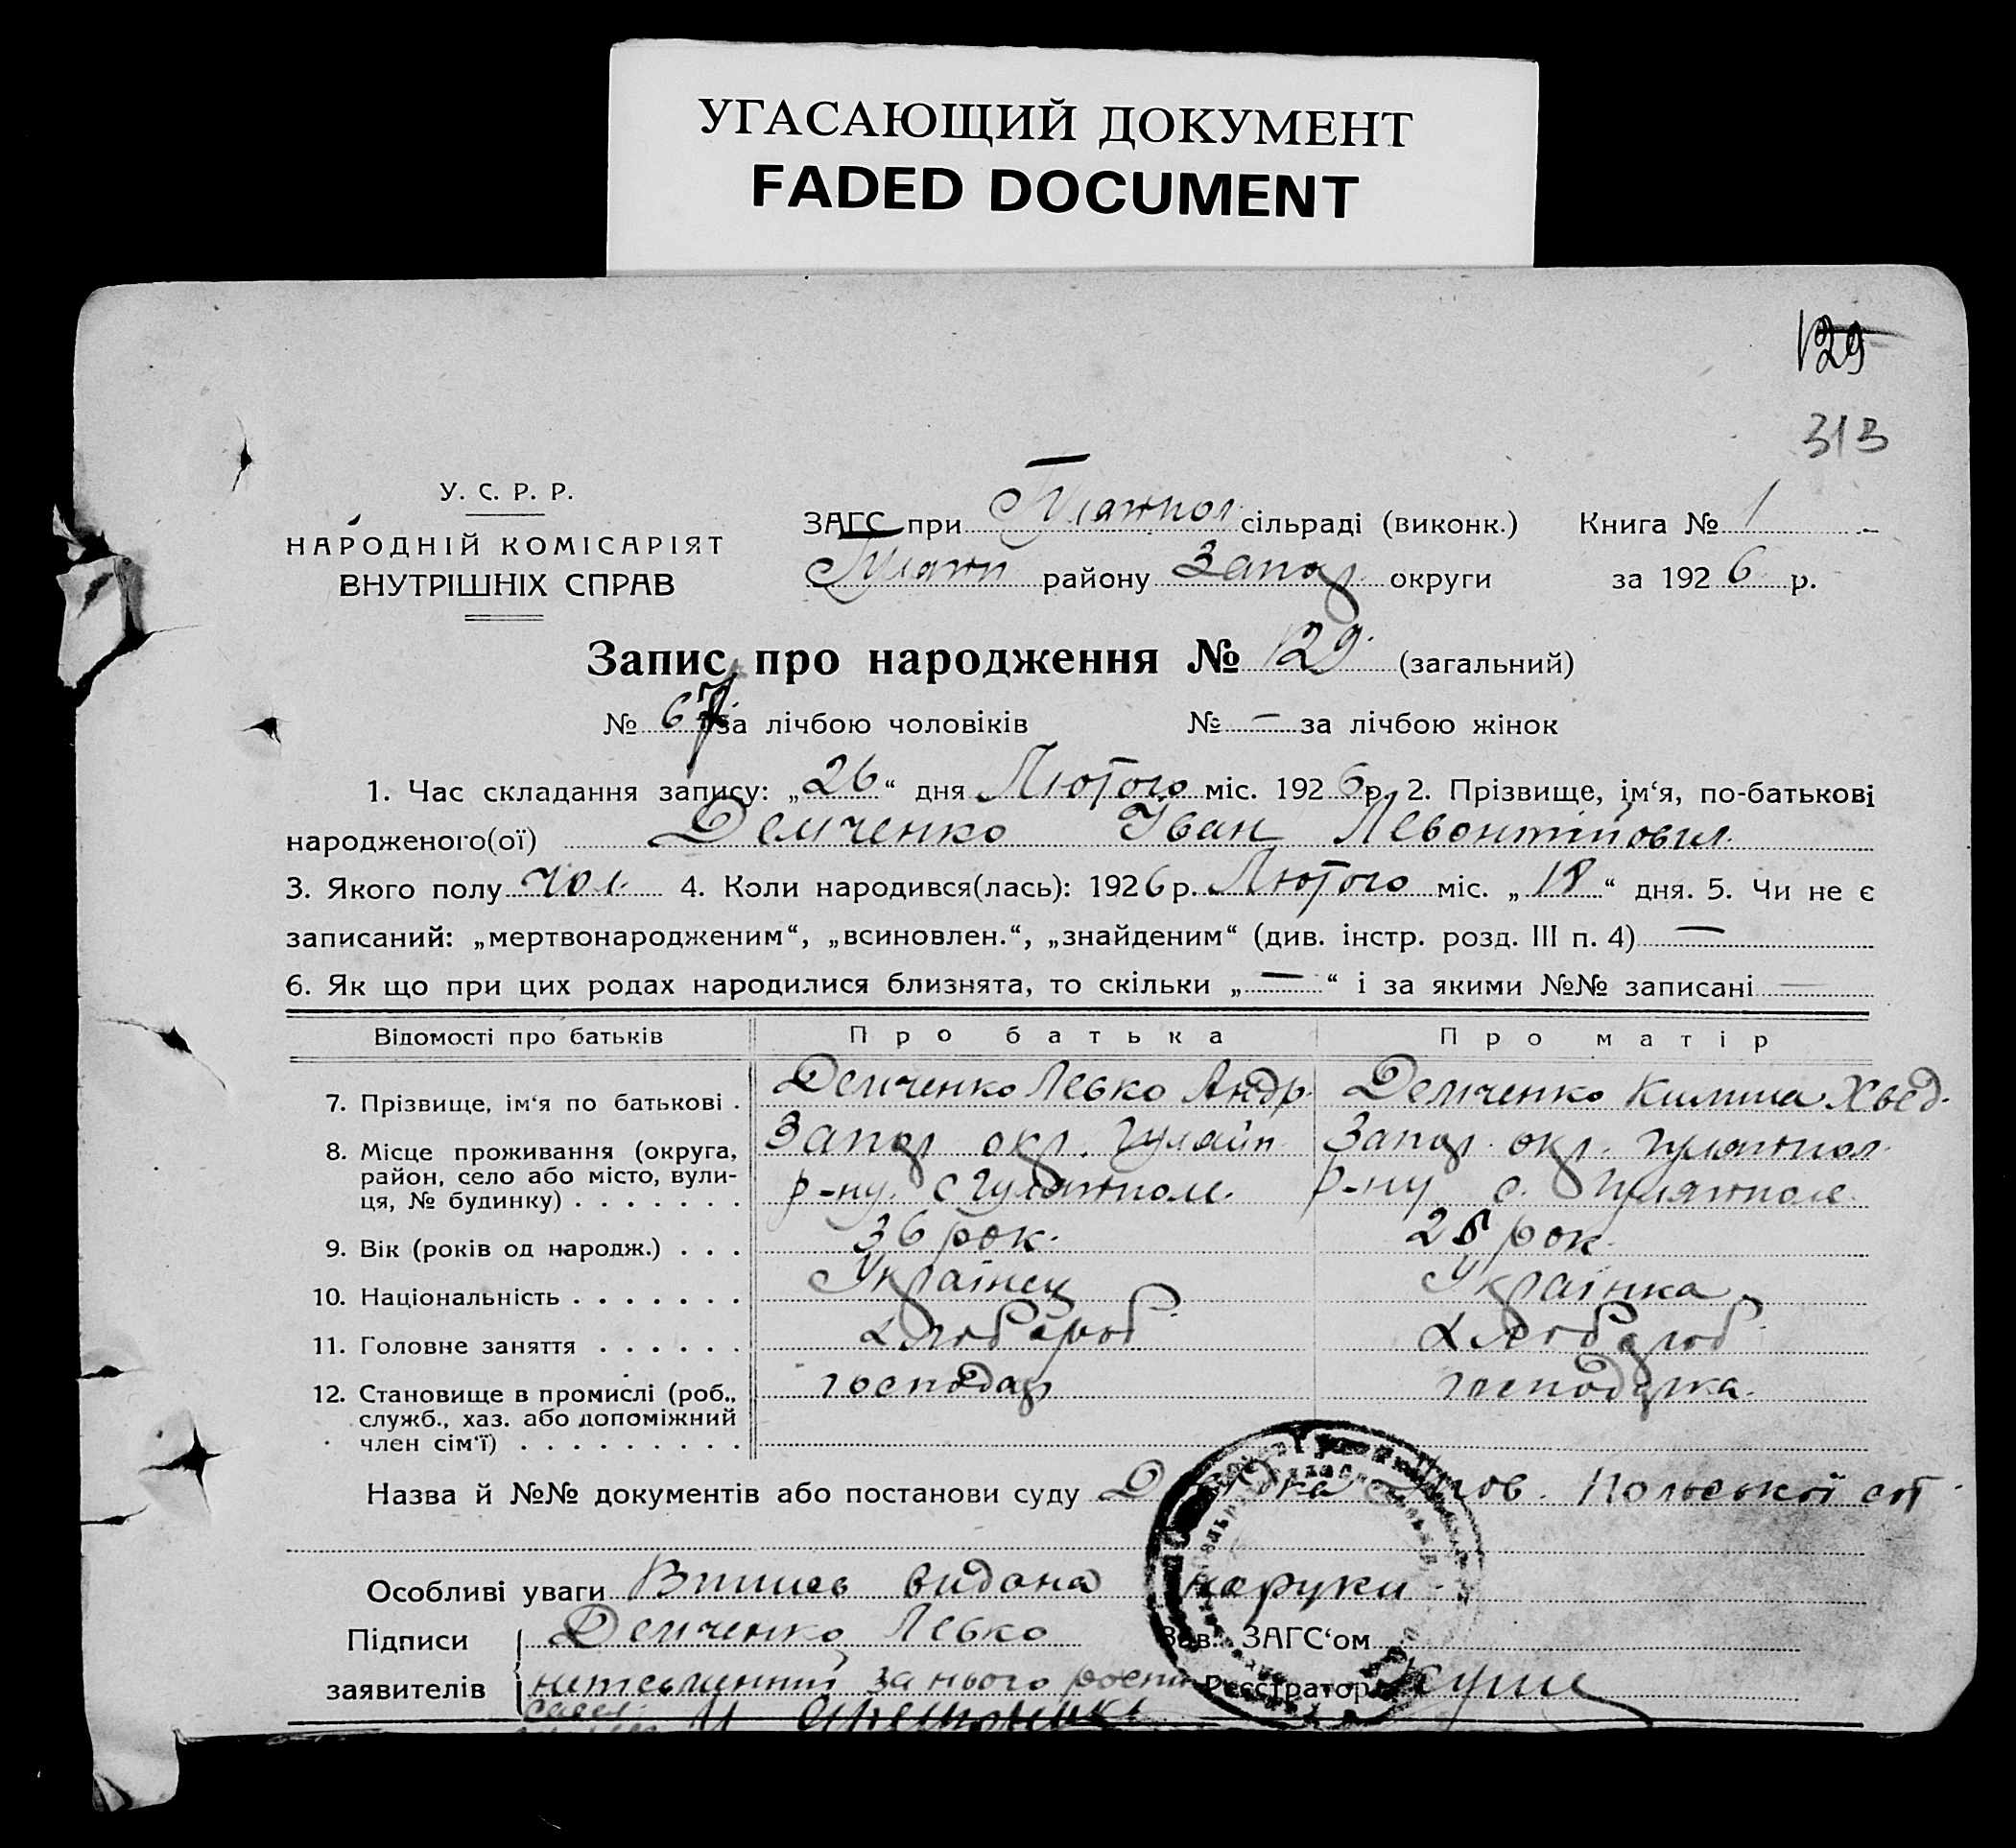 УГАСАЮЩИЙ ДОКУМЕНТ
FADED DOCUMENT
129
313
У. С. Р. Р.
НАРОДНІЙ КОМІСАРІЯТ
ВНУТРІШНІХ СПРАВ
ЗАГС при Гуляйпол. сільраді (виконк.) Книга № 1
Гуляйп району Запор. округи за 1926 р.
Запис про народження № 129. (загальний)
№ 67 за лічбою чоловіків № — за лічбою жінок
1. Час складання запису: „26“ дня Лютого міс. 1926 р. 2. Прізвище, ім‘я, по-батькові
народженого(ої) Демченко Іван Левонтійович.
3. Якого полу чол. 4. Коли народився(лась): 1926 р. Лютого міс. „18“ дня. 5. Чи не є
записаний: „мертвонародженим“, „всиновлен.“, „знайденим“ (див. інстр. розд. III п. 4) —
6. Як що при цих родах народилися близнята, то скільки „—“ і за якими №№ записані —
Відомості про батьків Про батька Про матір
7. Прізвище, ім‘я по батькові . Демченко Левко Андр. Демченко Хвед.
8. Місце проживання (округа, Запор окр. Гуляйп. Запор. окр. Гуляйпол.
район, село або місто, вули- р-ну. с Гуляйполе. р-ну с. Гуляйполе.
ця, № будинку) . . . . . . .
9. Вік (років од народж.) . . . 36 рок. 28 рок.
10. Національність . . . . . . . Українец Українка
11. Головне заняття . . . . . . Хлібороб Хлібороб
12. Становище в промислі (роб., господар господарка.
служб., хаз. або допоміжний
член сім‘ї) . . . . . . . . .
Назва й №№ документів або постанови суду Польської сот
Особливі уваги Випись видана на руки.
Підписи Демченко Левко Зав. ЗАГС‘ом
заявителів неписьменний за нього Реєстратор